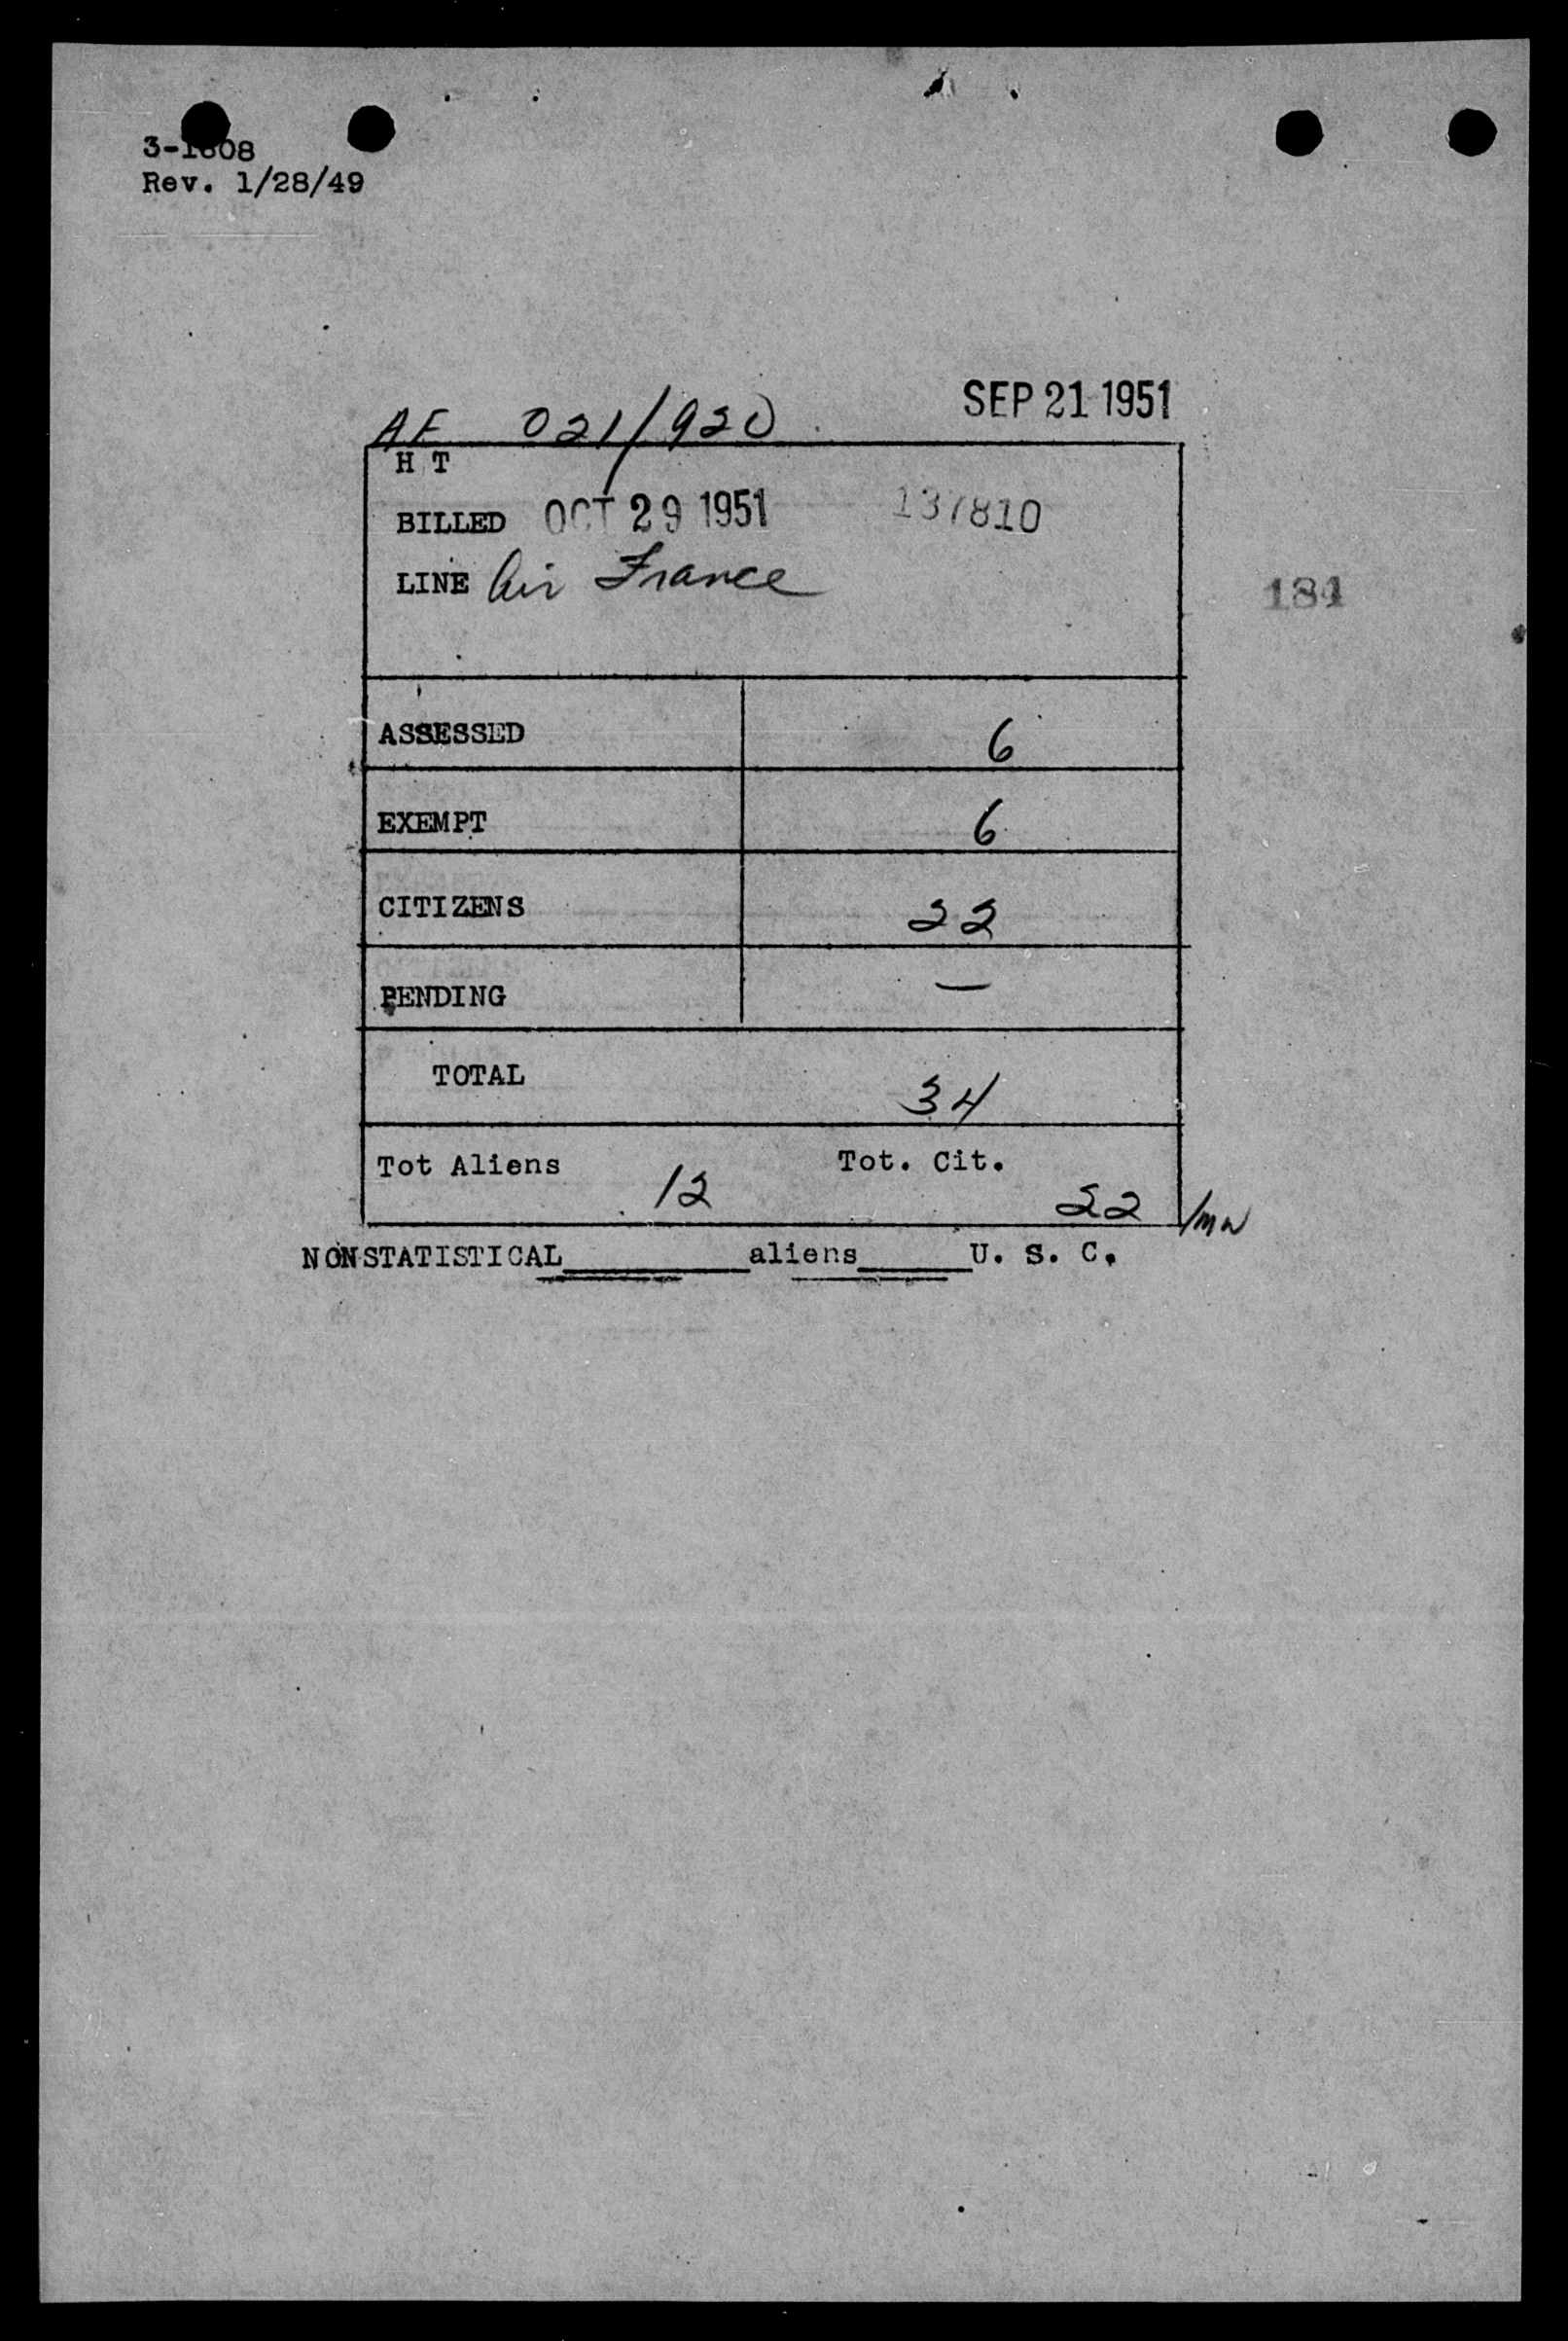 Rev. 1/28/49
SEP 21 1951
AF 021/920
H T
BILLED OCT 29 1951 137810
LINE Air France
184
ASSESSED 6
EXEMPT 6
CITIZENS 22
PENDING —
TOTAL 34
Tot Aliens 12 Tot. Cit. 22 /mw
NONSTATISTICAL__________aliens______U. S. C.